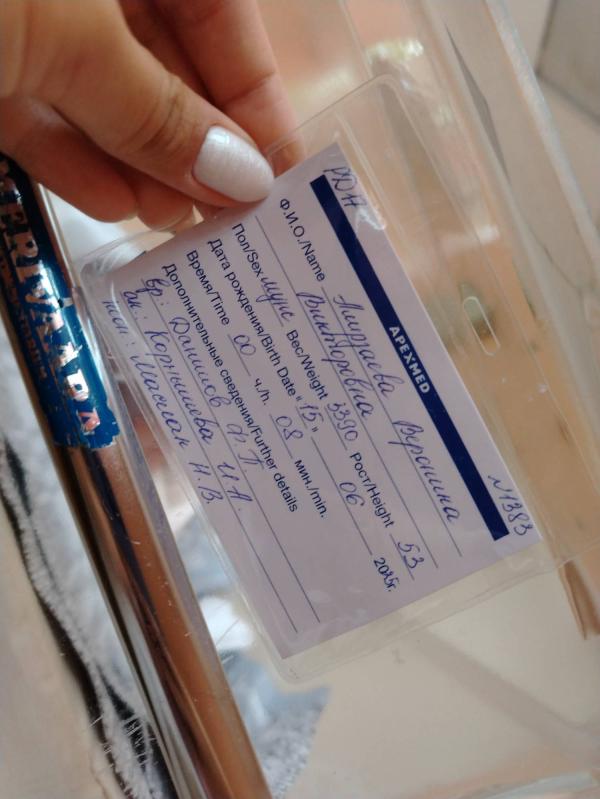 №1383
APEXMED
Ф.И.О./Name Мирзаева Вероника
Викторовна
Пол/Sex муж Вес/Weight 3390 Рост/Height 53
Дата рождения/Birth Date « 15 » 06 2025г.
Время/Time 00 ч./h. 08 мин./min.
Дополнительные сведения/Further details
Вр. Данилов Ф.П.
ак: Корнышева И.А.